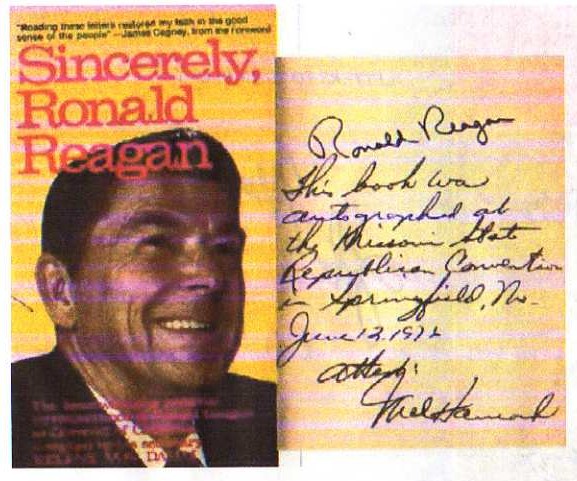 "Reading these letters restored my faith in the good
sense of the people" —James Cagney, from the Foreword
Sincerely,
Ronald
Reagan
Ronald Reagan
This book was
autographed at
the Missouri State
Republican Convention
in Springfield, Mo.
June 12, 197
Attest:
Mel Hancock